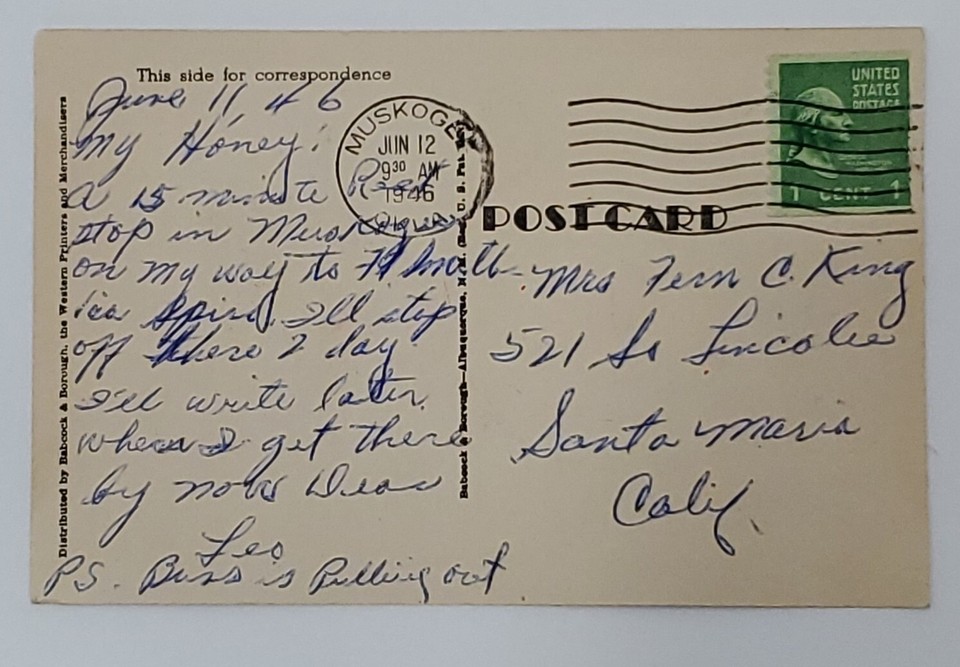 This side for correspondence
June 11, 46
My Honey;
A 15 minute Rest
stop in Muskogee
on my way to
Spirs. I'll stop
off there 2 day.
I'll write later.
when I get there
by now Dear
Leo
PS. Buss is Pulling out
Distributed by Babcock & Borough, the Western Printers and Merchandisers
Babcock & Borough—Albuquerque, N. M. (Reg. U. S. Pat.
MUSKOGEE
JUN 12
9 30 AM
1946
OKLA.
UNITED
STATES
POSTAGE
1 CENT 1
POST CARD
Mrs Fern C. King
521 So Lincoln
Santa Maria
Calif.